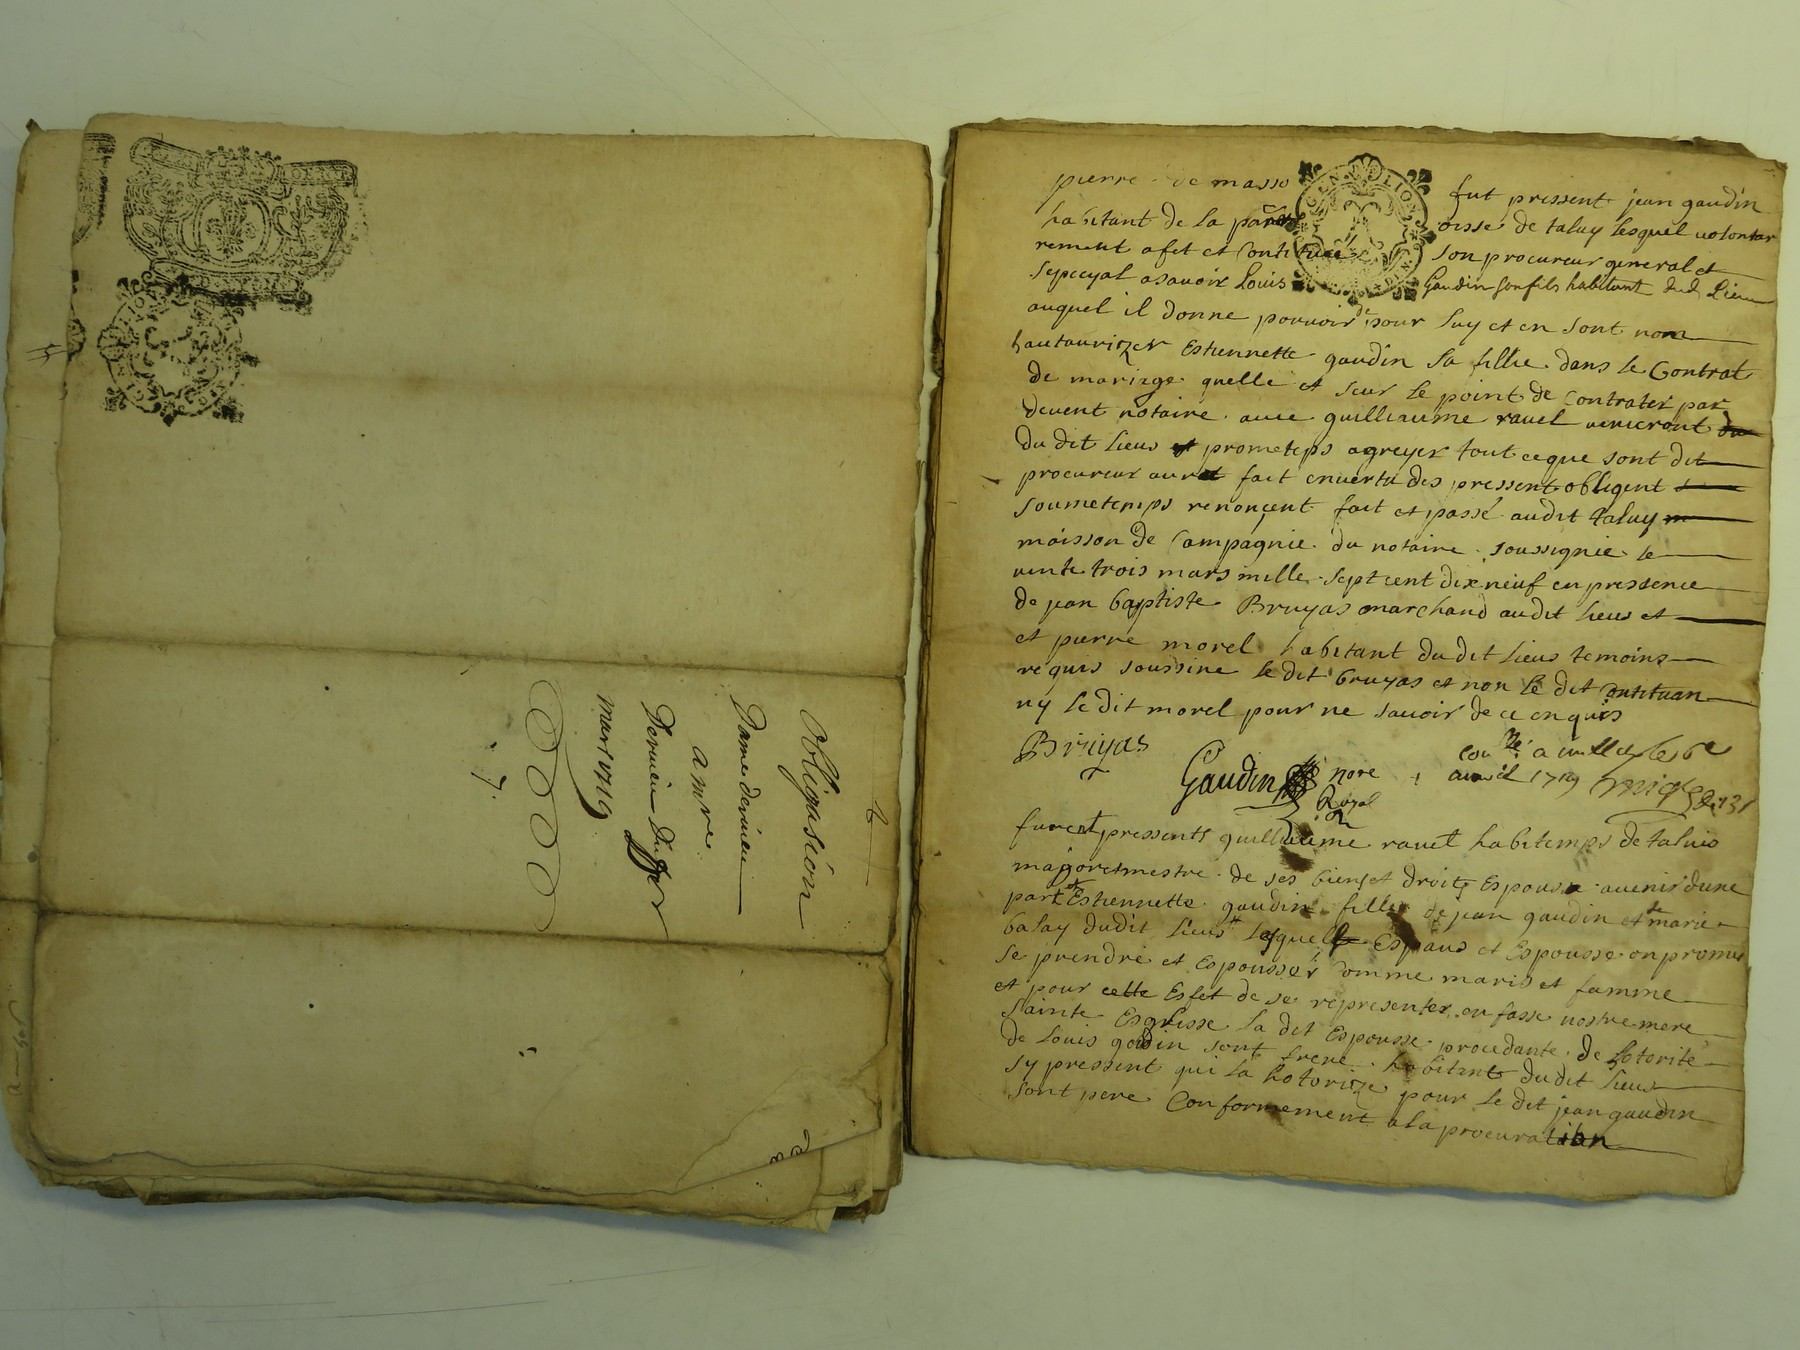 Obligasion
Dame deruieu
a mre
Deruieu Du
mars 1719
7.
pierre de masso fut pressent jean gaudin
habitant de la paroisse de taluy lesquel volontai
rement a fet et Contitue son procureur general et
sepecyal asauoir Louis Gaudin son fils habitant dud Lieu
auquel il donne pouuoir de pour luy et en sont nom
hautaurizer Estiennette gaudin sa fillie dans le Contrat
de mariage quelle et seur le point de Contrater par
deuent notaire auec guilliaume rauel
du dit Lieus et prometeps agreyer tout ce que sont dit
procureur aurat fait en uertu des pressent obligent
soumetemps renonçent fait et passé audit taluy
moisson de Campagnie du notaire soussignie le
uinte trois mars mille sept cent dix neuf en pressence
de jean baptiste Bruyas marchand audit lieus et
et pierre morel habitant du dit Lieus temoins
requis soussine le dit bruyas et non le dit Contituan
ny le dit morel pour ne sauoir de ce enquis
Bruyas
Gaudin nore
Royal
auril 1719
furent pressents guilliaume rauel habitemps de taluio
magoretmestre de ses biens et droits Espoux auenir dune
part et Estiennette gaudin fillie de jean gaudin et de marie
balay dudit Lieus lesquel Espous et Espousse on promis
se prendre et Espousser Comme maris et famme
et pour cette Esfet de se representer en fasse nostre mere
sainte Esglisse la dit Espousse procedante de lotorité
de Louis godin sont frere habitant du dit Lieus
sy pressent qui la hotorize pour le dit jean gaudin
sont pere Conformement a la procuration